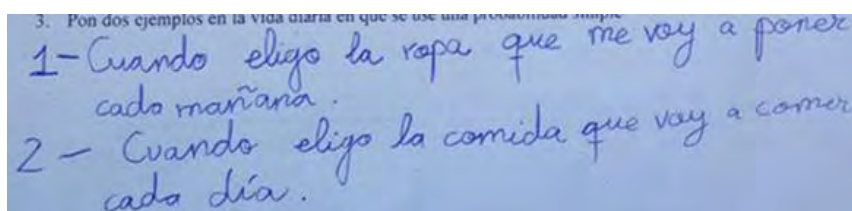 3. Pon dos ejemplos en la vida diaria en que se use una probabilidad simple
1- Cuando eligo la ropa que me voy a poner
cada mañana.
2 - Cuando eligo la comida que voy a comer
cada día.